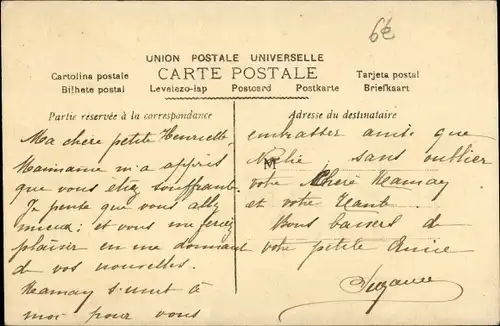 6€
UNION POSTALE UNIVERSELLE
CARTE POSTALE
Cartolina postale
Tarjeta postal
Bilhete postal Levelezo-lap Postcard Postkarte Briefkaart
Partie réservée à la correspondance
Adresse du destinataire
Ma chère petite Henriette
Mamame m'a appris
que vous étiez souffrante
Je pense que vous allez
mieux; et vous me ferez
plaisir en me donnant
de vos nouvelles.
Mamay s'unit à
moi pour vous
embrasser ainsi que
sans oublier
votre Chère Mamay
et votre
Bons baisers de
votre petite Amie
Suzanne